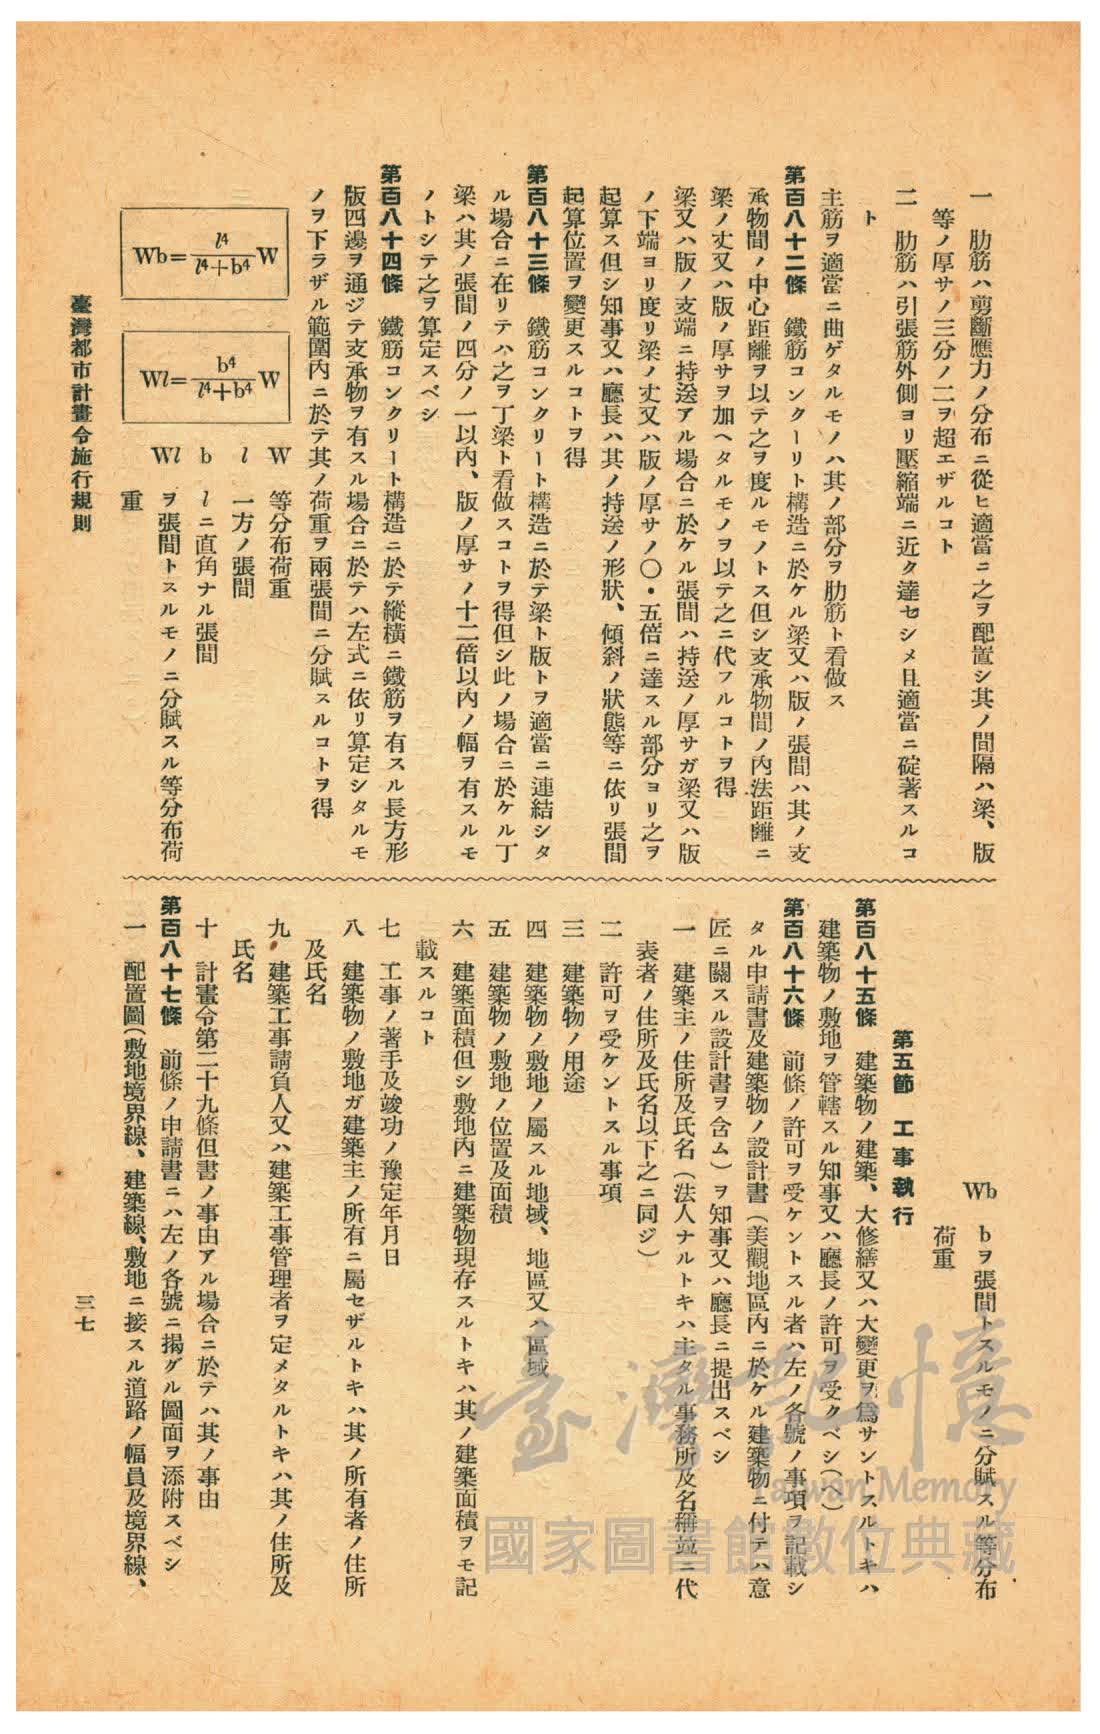 一　肋筋ハ剪斷應力ノ分布ニ從ヒ適當ニ之ヲ配置シ其ノ間隔ハ梁、版
等ノ厚サノ三分ノ二ヲ超エザルコト
二　肋筋ハ引張筋外側ヨリ壓縮端ニ近ク達セシメ且適當ニ碇著スルコ
ト
主筋ヲ適當ニ曲ゲタルモノハ其ノ部分ヲ肋筋ト看做ス
第百八十二條　鐵筋コンクーリト構造ニ於ケル梁又ハ版ノ張間ハ其ノ支
承物間ノ中心距離ヲ以テ之ヲ度ルモノトス但シ支承物間ノ內法距離ニ
梁ノ丈又ハ版ノ厚サヲ加ヘタルモノヲ以テ之ニ代フルコトヲ得
梁又ハ版ノ支端ニ持送アル場合ニ於ケル張間ハ持送ノ厚サガ梁又ハ版
ノ下端ヨリ度リ梁ノ丈又ハ版ノ厚サノ〇・五倍ニ達スル部分ヨリ之ヲ
起算ス但シ知事又ハ廳長ハ其ノ持送ノ形狀、傾斜ノ狀態等ニ依リ張間
起算位置ヲ變更スルコトヲ得
第百八十三條　鐵筋コンクリート構造ニ於テ梁ト版トヲ適當ニ連結シタ
ル場合ニ在リテハ之ヲ丁梁ト看做スコトヲ得但シ此ノ場合ニ於ケル丁
梁ハ其ノ張間ノ四分ノ一以內、版ノ厚サノ十二倍以內ノ幅ヲ有スルモ
ノトシテ之ヲ算定スベシ
第百八十四條　鐵筋コンクリート構造ニ於テ縱橫ニ鐵筋ヲ有スル長方形
版四邊ヲ通ジテ支承物ヲ有スル場合ニ於テハ左式ニ依リ算定シタルモ
ノヲ下ラザル範圍內ニ於テ其ノ荷重ヲ兩張間ニ分賦スルコトヲ得
Wb=l⁴/(l⁴+b⁴)W
Wl=b⁴/(l⁴+b⁴)W
W　等分布荷重
l　一方ノ張間
b　lニ直角ナル張間
Wl　ヲ張間トスルモノニ分賦スル等分布荷
重
Wb　bヲ張間トスルモノニ分賦スル等分布
荷重
第五節　工事執行
第百八十五條　建築物ノ建築、大修繕又ハ大變更ヲ爲サントスルトキハ
建築物ノ敷地ヲ管轄スル知事又ハ廳長ノ許可ヲ受クベシ(へ)
第百八十六條　前條ノ許可ヲ受ケントスル者ハ左ノ各號ノ事項ヲ記載シ
タル申請書及建築物ノ設計書(美觀地區內ニ於ケル建築物ニ付テハ意
匠ニ關スル設計書ヲ含ム)ヲ知事又ハ廳長ニ提出スベシ
一　建築主ノ住所及氏名(法人ナルトキハ主タル事務所及名稱竝ニ代
表者ノ住所及氏名以下之ニ同ジ)
二　許可ヲ受ケントスル事項
三　建築物ノ用途
四　建築物ノ敷地ノ屬スル地域、地區又ハ區域
五　建築物ノ敷地ノ位置及面積
六　建築面積但シ敷地內ニ建築物現存スルトキハ其ノ建築面積ヲモ記
載スルコト
七　工事ノ著手及竣功ノ豫定年月日
八　建築物ノ敷地ガ建築主ノ所有ニ屬セザルトキハ其ノ所有者ノ住所
及氏名
九　建築工事請負人又ハ建築工事管理者ヲ定メタルトキハ其ノ住所及
氏名
十　計畫令第二十九條但書ノ事由アル場合ニ於テハ其ノ事由
第百八十七條　前條ノ申請書ニハ左ノ各號ニ揭グル圖面ヲ添附スベシ
一　配置圖(敷地境界線、建築線、敷地ニ接スル道路ノ幅員及境界線、
臺灣都市計畫令施行規則
三七
臺灣記憶
Taiwan Memory
國家圖書館數位典藏